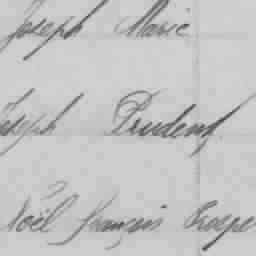 Joseph Marie
Joseph Prudent
Noël français Prosper